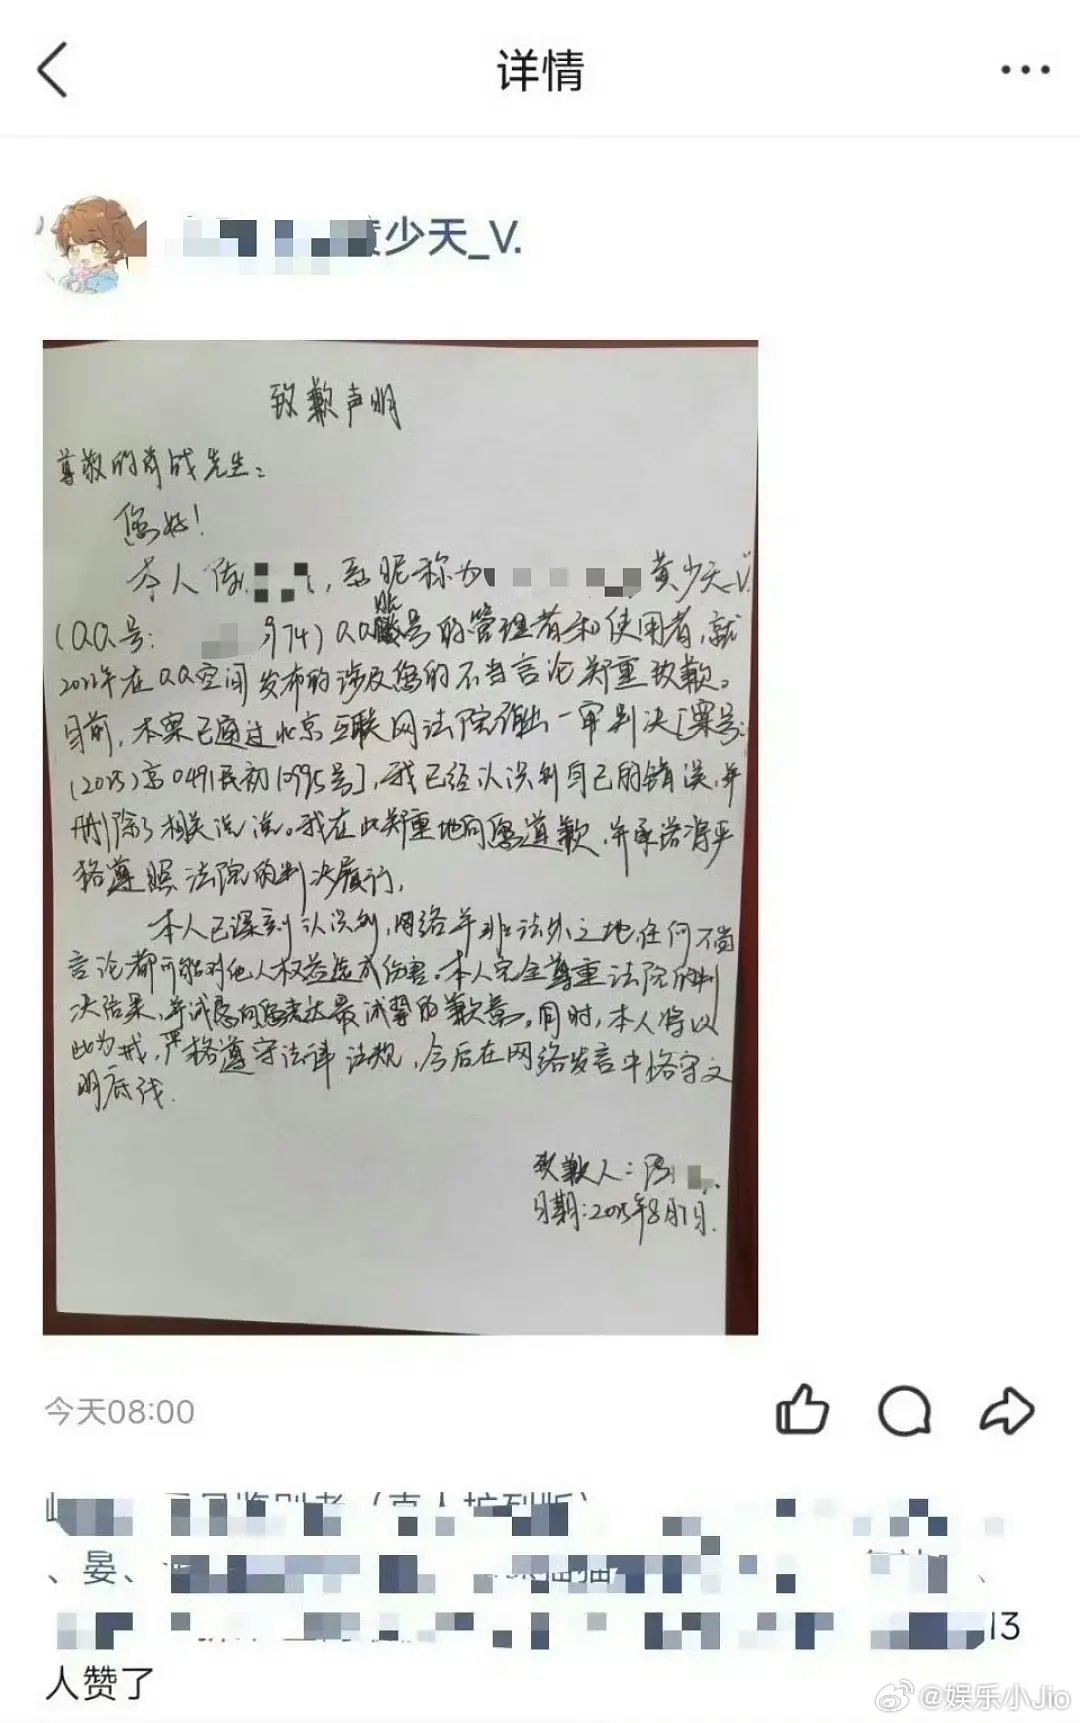 详情
少天_V.
致歉声明
尊敬的肖战先生：
您好！
本人陈，系昵称为 黄少天_V.”
（QQ号： 974）QQ账号的管理者和使用者，就
2022年在QQ空间发布的涉及您的不当言论郑重致歉。
目前，本案已通过北京互联网法院作出一审判决［案号：
（2025）京0491民初 号］，我已经认识到自己的错误，并
删除了相关说说。我在此郑重地向您道歉，并承诺将严
格遵照法院的判决履行。
本人已深刻认识到，网络并非法外之地，任何不当
言论都可能对他人权益造成伤害。本人完全尊重法院的判
决结果，并诚恳向您表达最诚挚的歉意。同时，本人将以
此为戒，严格遵守法律法规，今后在网络发言中恪守文
明底线.
致歉人：陈
日期：2025年8月 日.
今天08:00
、晏、
13
人赞了
@娱乐小Jio